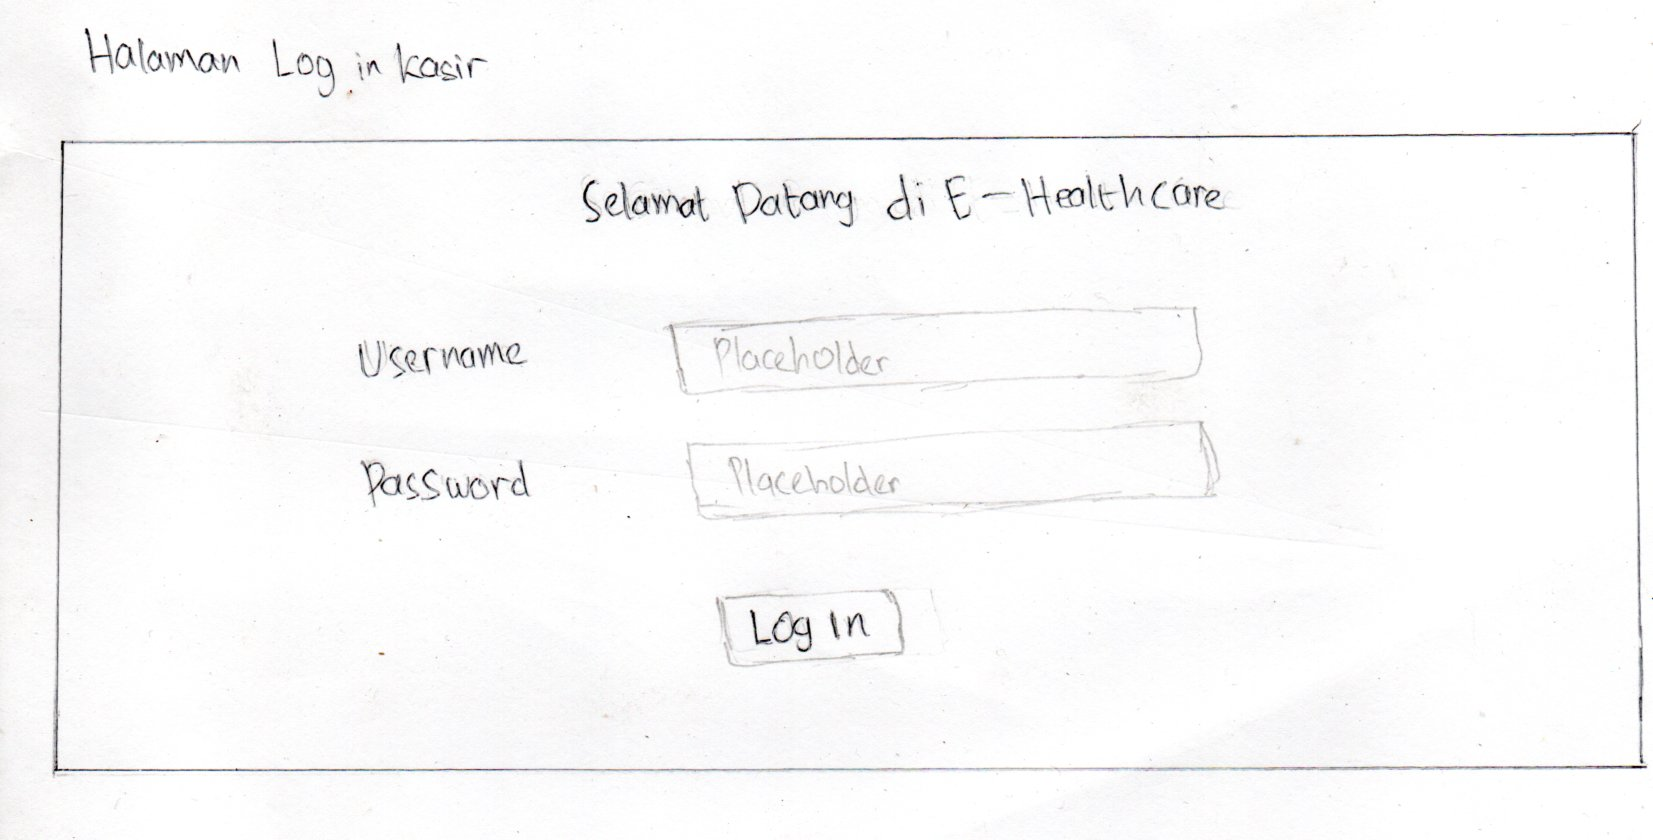 Halaman Log in kasir
Selamat Datang di E-Healthcare
Username Placeholder
Password Placeholder
Log In